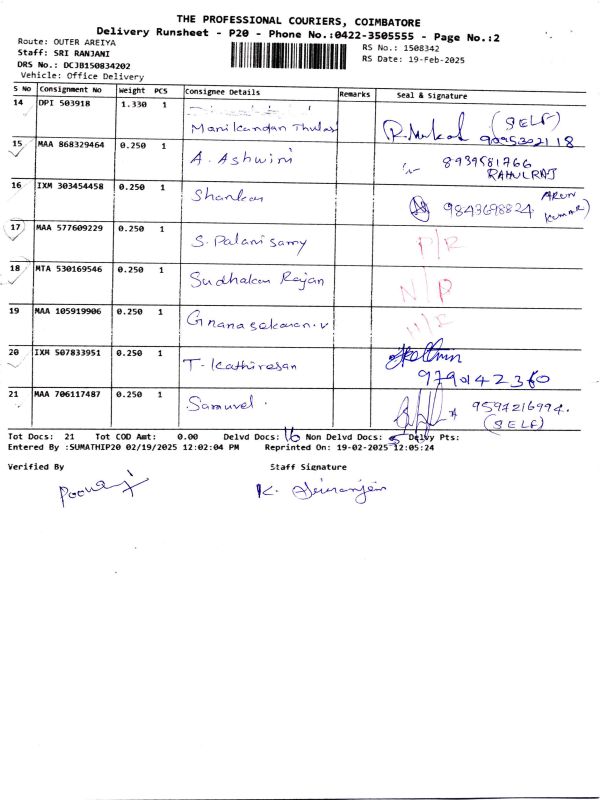 THE PROFESSIONAL COURIERS, COIMBATORE
Delivery Runsheet - P20 - Phone No.:0422-3505555 - Page No.:2
Route: OUTER AREIYA
Staff: SRI RANJANI
DRS No.: DCJB150834202
Vehicle: Office Delivery
RS No.: 1508342
RS Date: 19-Feb-2025
S No Consignment No Weight PCS Consignee Details Remarks Seal & Signature
14 DPI 503918 1.330 1 Manikandan Thulasi (SELF)
15 MAA 868329464 0.250 1 A. Ashwini 8939581766
RAHULRAJ
16 IXM 303454458 0.250 1 Shankar 9843698824 ARUN
KUMAR)
17 MAA 577609229 0.250 1 S. Palanisamy P/R
18 MTA 530169546 0.250 1 Sudhakar Rajan N/P
19 MAA 105919906 0.250 1 Gnanasekaran.v
20 IXM 507833951 0.250 1 T. Kathiresan
9790142360
21 MAA 706117487 0.250 1 Samuvel. 9597216994.
(SELF)
Tot Docs: 21 Tot COD Amt: 0.00 Delvd Docs: 16 Non Delvd Docs: 5 Delvy Pts:
Entered By :SUMATHIP20 02/19/2025 12:02:04 PM Reprinted On: 19-02-2025 12:05:24
Verified By Staff Signature